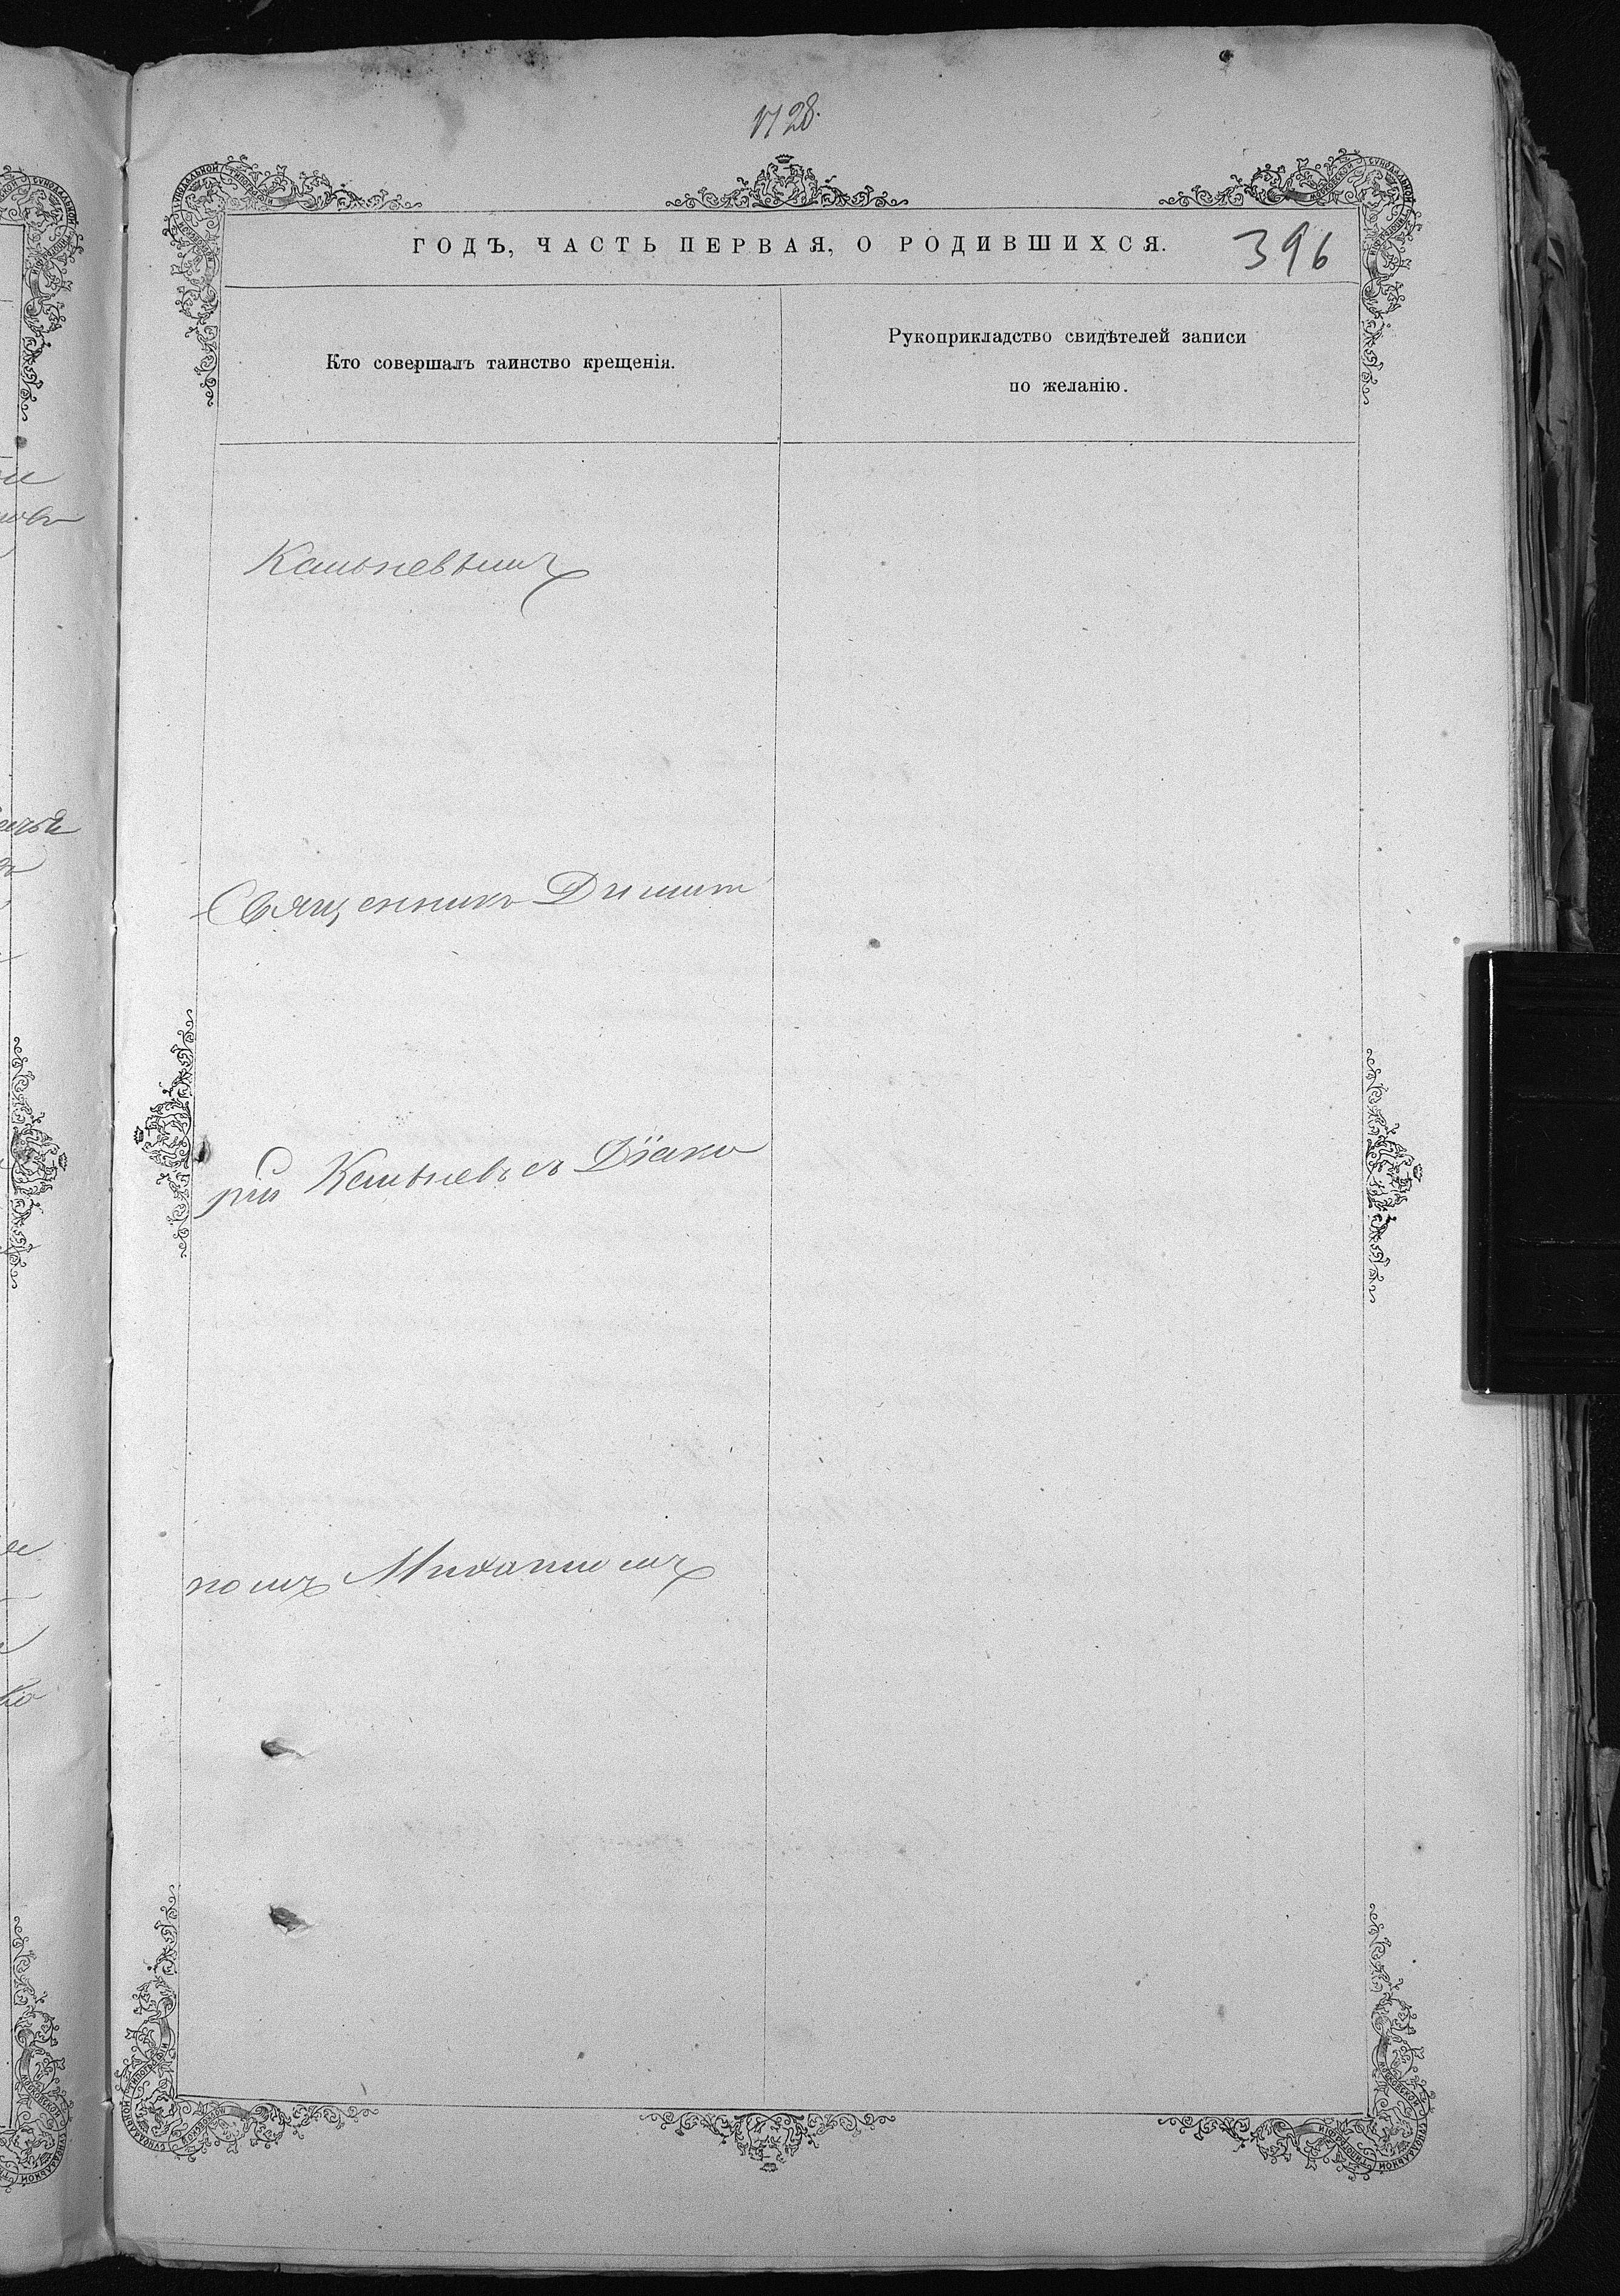 1728.
ГОДЪ, ЧАСТЬ ПЕРВАЯ, О РОДИВШИХСЯ.
396
Кто совершалъ таинство крещенія.
Рукоприкладство свидѣтелей записи
по желанію.
Священникъ Димит
рій съ Діако
номъ Михаиломъ